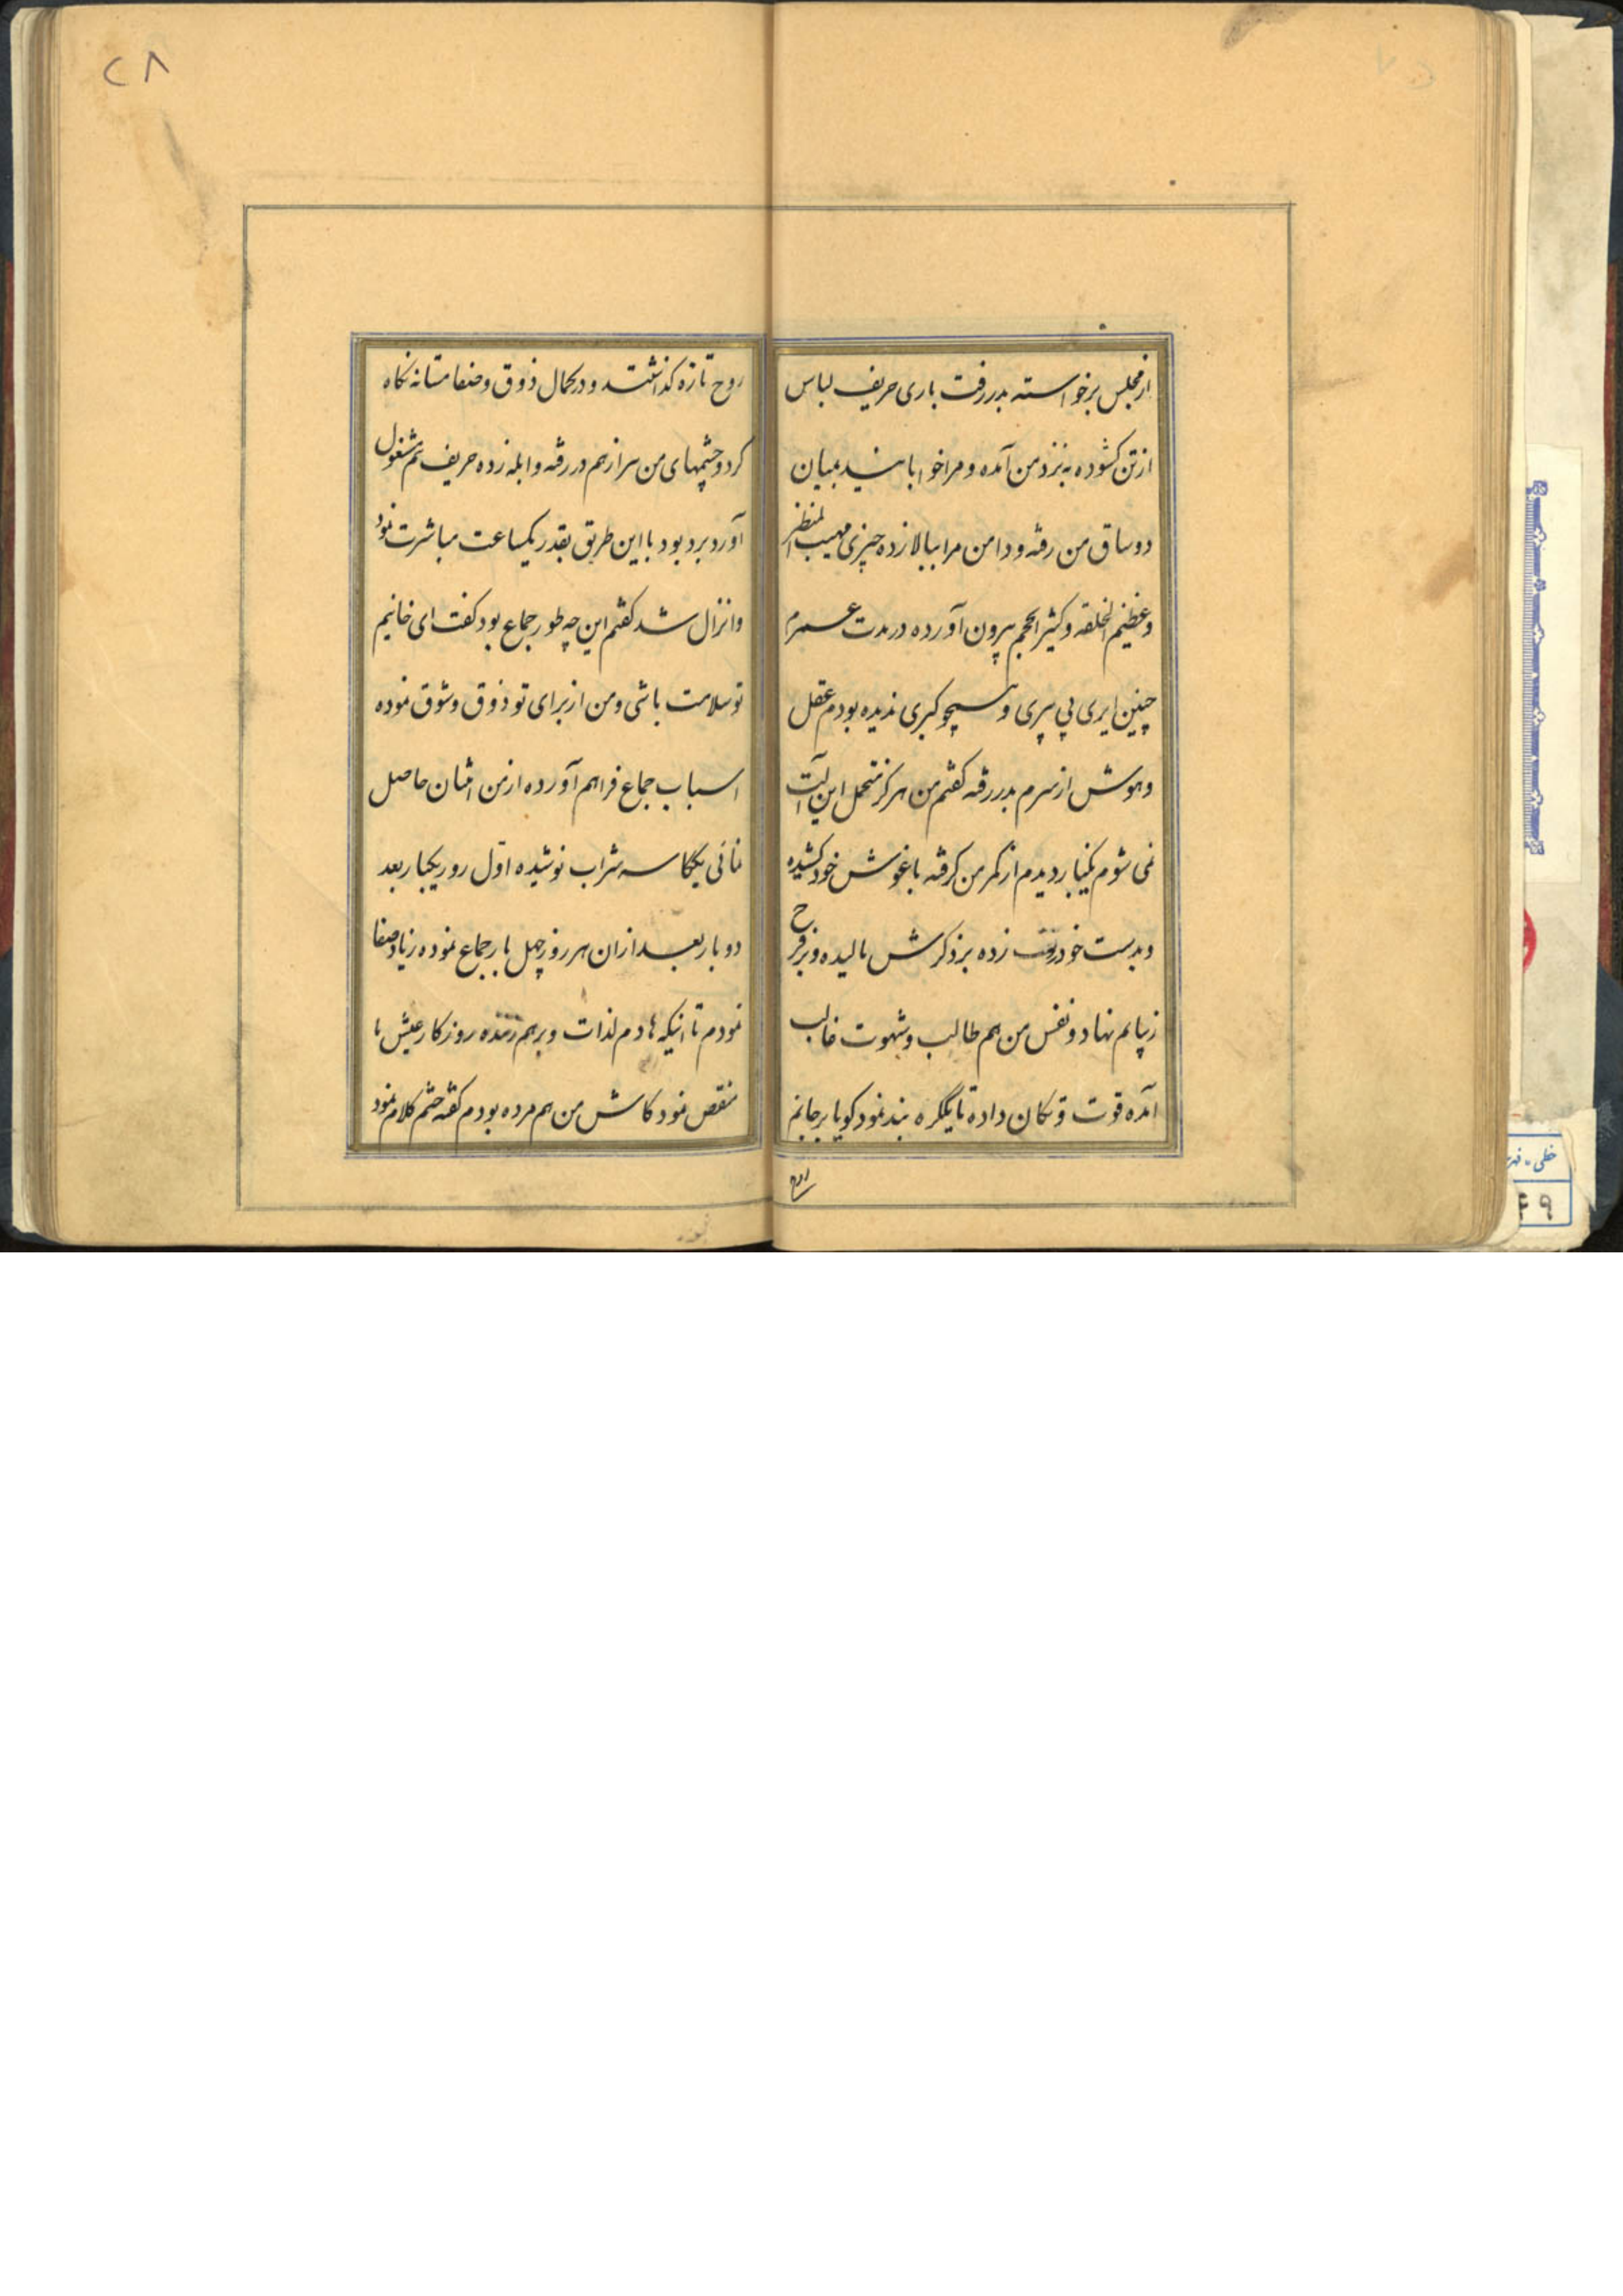 از مجلس برخواسته بدر رفت باری حریف لباس
از تن کشوده به نزد من آمده و مرا خوابانید بمیان
دو ساق من رفته و دامن مرا ببالا زده چیزی مهیب المنظر
و عظیم الخلقه و کثیر الحجم بیرون آورده در مدت عمرم
چنین ایری بی پیری و هیچو کبری ندیده بودم عقل
و هوش از سرم بدر رفته کفتم من هرکز متحمل این آلت
نمی شوم یکبار دیدم از کمر من کرفته باغوش خود کشیده
و بدست خود تف زده بر ذکرش مالیده و بر فرح
زیبایم نهاد و نفس من هم طالب و شهوت غالب
آمده قوت و تکان داده تا یکره بند نمود کویا بر جانم
روح
روح تازه کذاشتند و در کمال ذوق و صفا مستانه نکاه
کرد و چشمهای من سرازهم در رفته و ابله زده حریف هم مشغول
آورد برد بود با این طریق بقدر یکساعت مباشرت نمود
و انزال شد کفتم این چه طور جماع بود کفت ای خانیم
تو سلامت باشی و من از برای تو ذوق و شوق نموده
اسباب جماع فراهم آورده از من انسان حاصل
نمائی یککاسه شراب نوشیده اوّل روز یکبار بعد
دو بار بعد از ان هر روز چهل بار جماع نموده زیاد صفا
نمودم تا اینکه هادم لذات و برهم زننده روزکار عیش ما
منقص نمود کاش من هم مرده بودم کفته ختم کلام نمود
۲۸